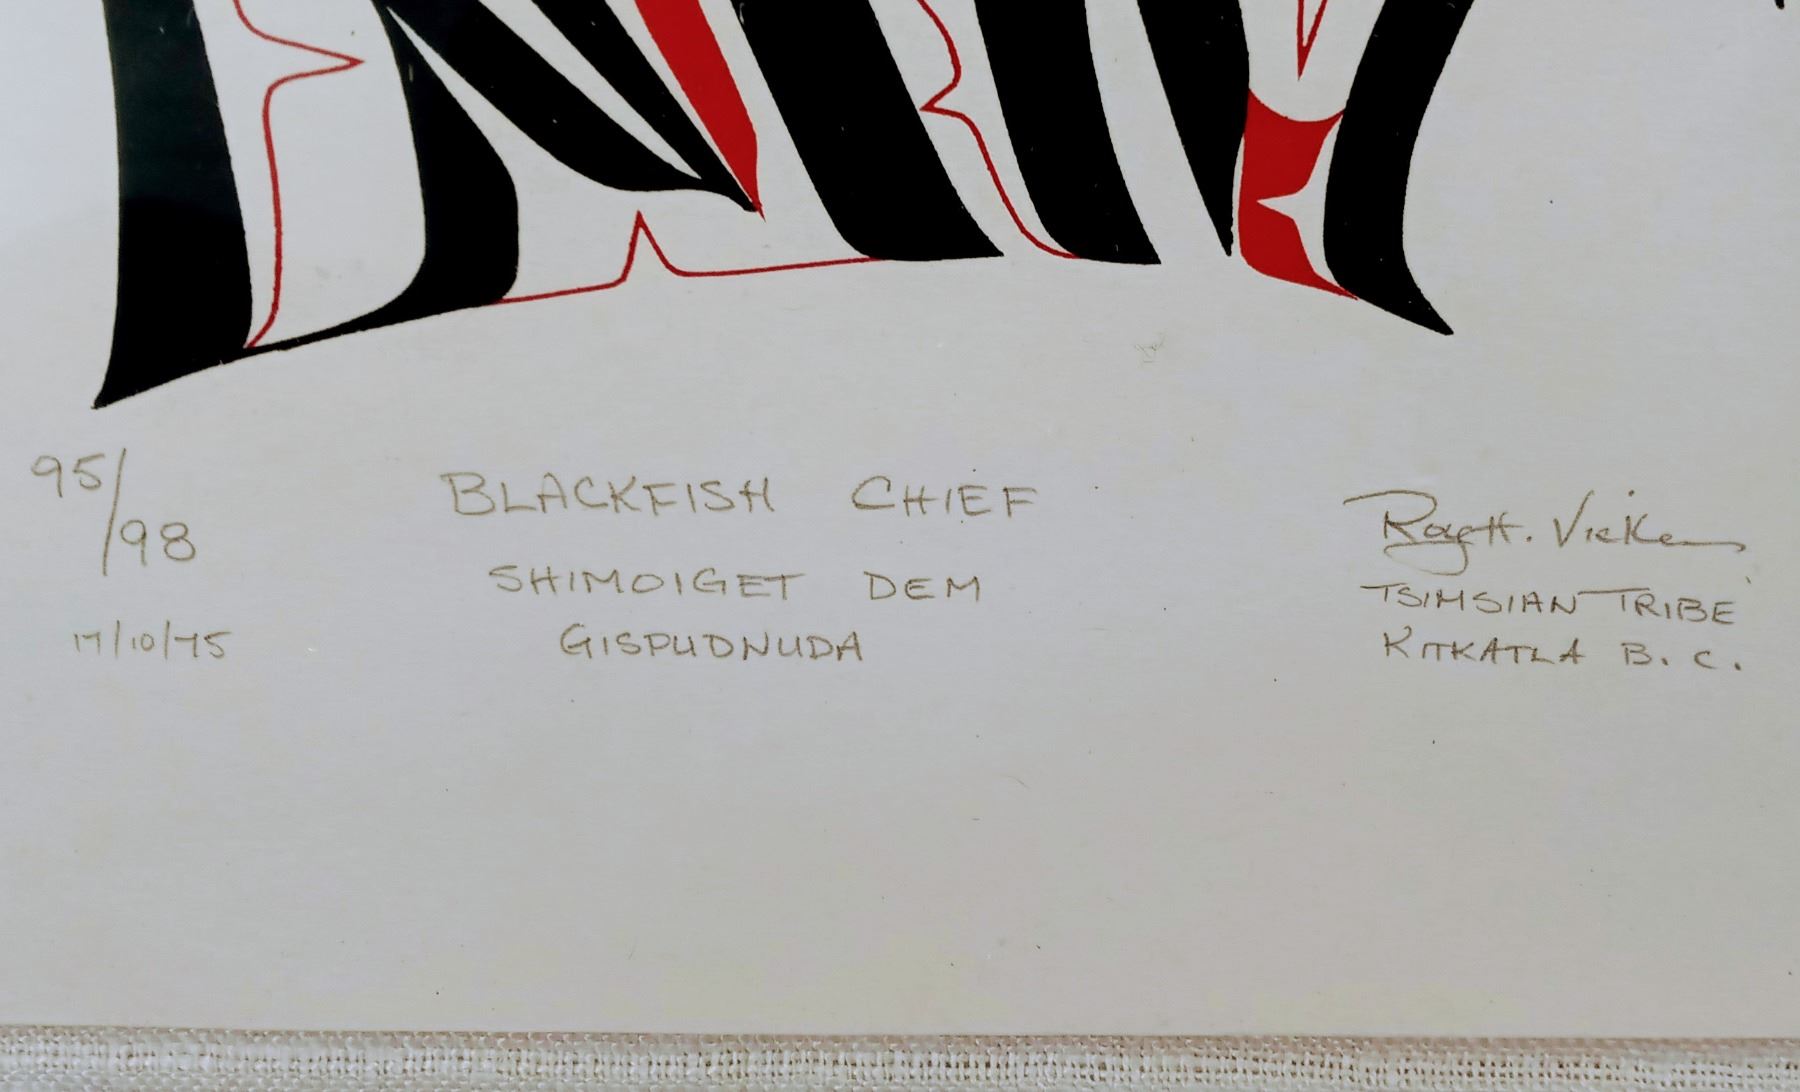 95/98
BLACKFISH CHIEF
SHIMOIGET DEM
GISPUDNUDA
17/10/75
Roy H. Vickers
TSIMSIAN TRIBE
KITKATLA B. C.